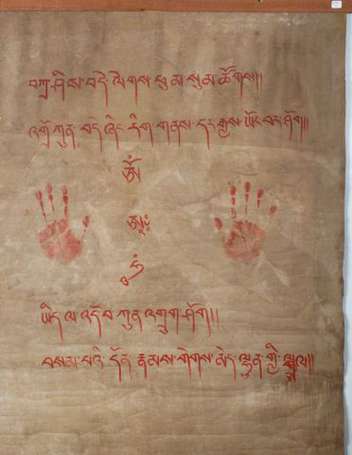 བཀྲ་ཤིས་བདེ་ལེགས་ཕུན་སུམ་ཚོགས།།
འགྲོ་ཀུན་བདེ་ཞིང་རིག་གནས་དར་རྒྱས་ཡོང་བར་ཤོག།
ཨོཾ
ཨཱཿ
ཧཱུྃ
ཡིད་ལ་འདོད་ཀུན་འགྲུབ་ཤོག།།
བསམ་པའི་དོན་རྣམས་གེགས་མེད་ལྷུན་གྱི་